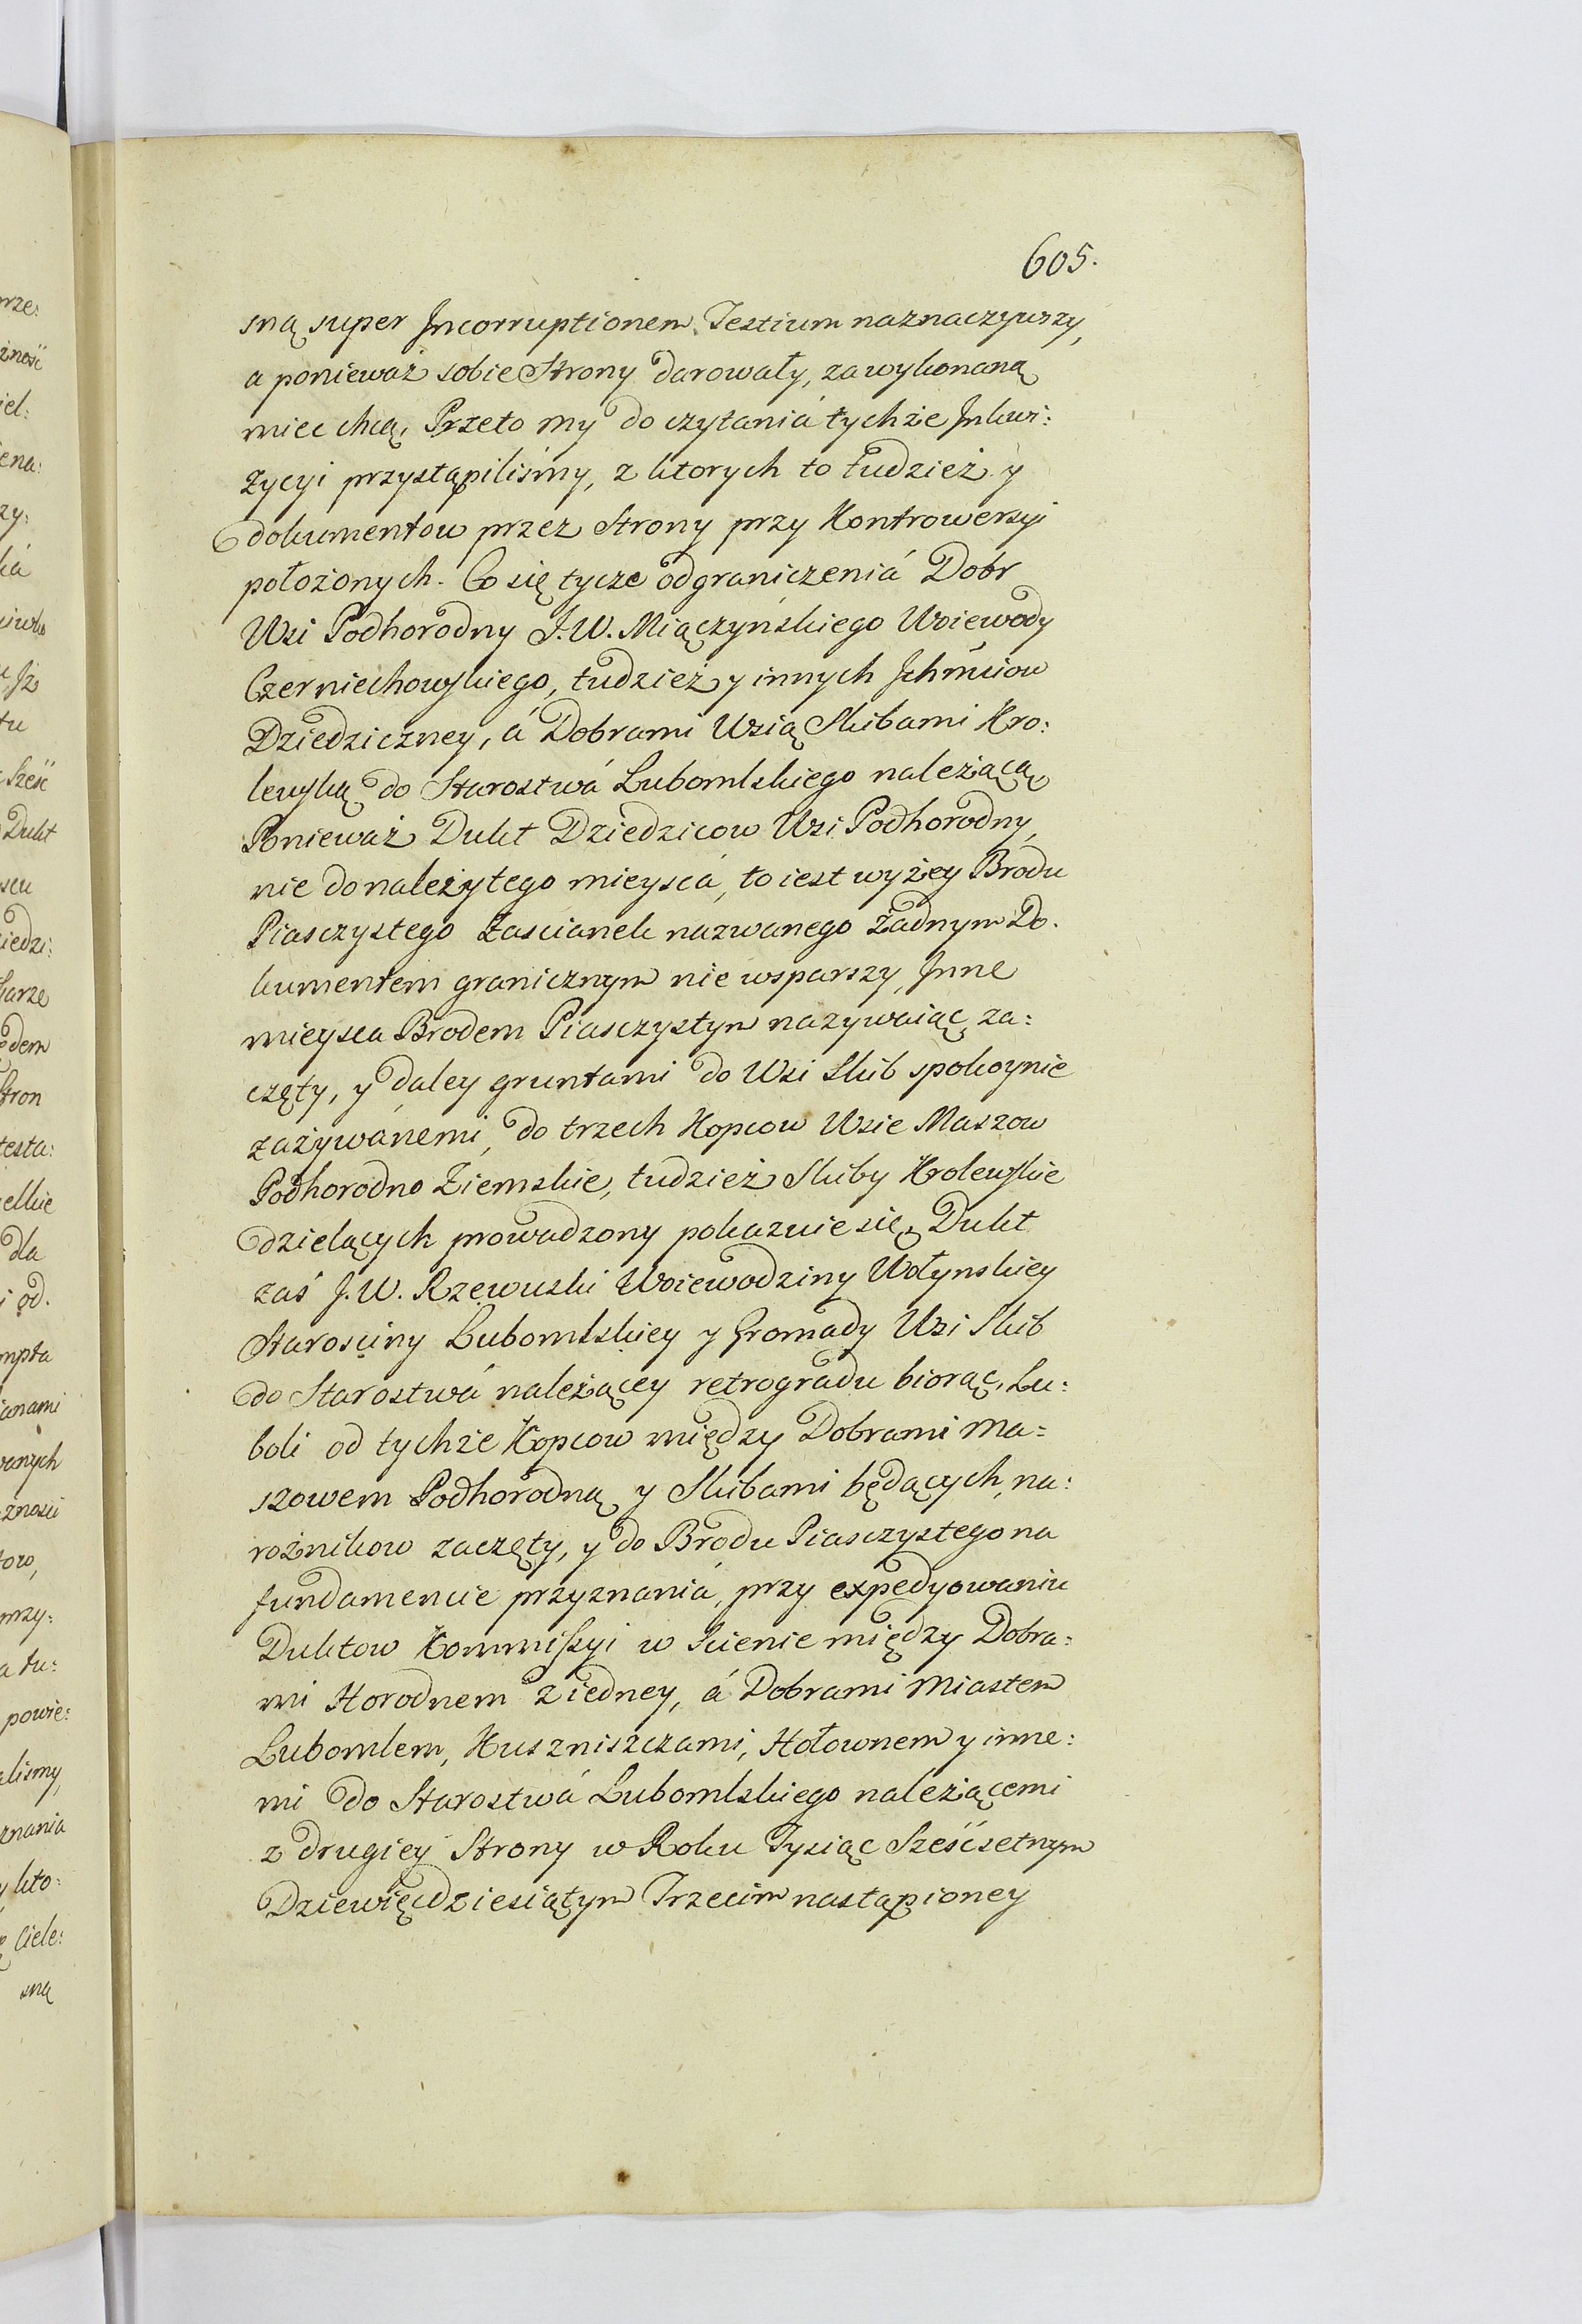 605.
sną super Incorruptionem Testium naznaczywszy,
a ponieważ sobie Strony darowały, za wykonaną
miec chcą, Przeto my do czytaniá tychże Inkwi:
zycyi przystąpiliśmy, z ktorych to tudzież y
dokumentow przez Strony przy Kontrowersyi
położonych. Co się tycze odgraniczeniá Dobr
Wsi Podhorodny J.W. Miączyńskiego Woiewody
Czerniechowskiego, tudzież y innych Ichmciow
Dziedziczney, á Dobrami Wsią Skibami Kro:
lewską do Starostwá Lubomlskiego należiącą,
Ponieważ Dukt Dziedzicow Wsi Podhorodny,
nie do należytego mieyscá, to iest wyżey Brodu
Piasczystego Zascianek nazwanego żadnym Do.
kumentem granicznym nie wsparszy, Inne
mieysca Brodem Piasczystym nazywaiąc za:
częty, y daley gruntami do Wsi Skib spokoynie
zażywánemi, do trzech Kopcow Wsie Maszow
Podhorodno Ziemskie, tudzież Skiby Krolewskie
dzielących prowadzony pokazuie się, Dukt
zaś J.W. Rzewuski Woiewodziny Wołynskiey
Starosciny Lubomlskiey y Gromady Wsi Skib
do Starostwá należącey retrogradu biorąc, Lu:
boli od tychże Kopcow między Dobrami Ma=
szowem Podhorodną y Skibami będących, na:
rożnikow zaczęty, y do Brodu Piasczystego na
fundamencie przyznaniá, przy expedyowaniu
Duktow Kommissyi w Scienie między Dobra:
mi Horodnem z iedney, á Dobrami Miastem
Lubomlem, Kuszniszczami, Hołownem y inne:
mi do Starostwá Lubomlskiego należiącemi
z drugiey Strony w Roku Tysiąc Sześćsetnym
Dziewięcdziesiątym Trzecim nastąpioney